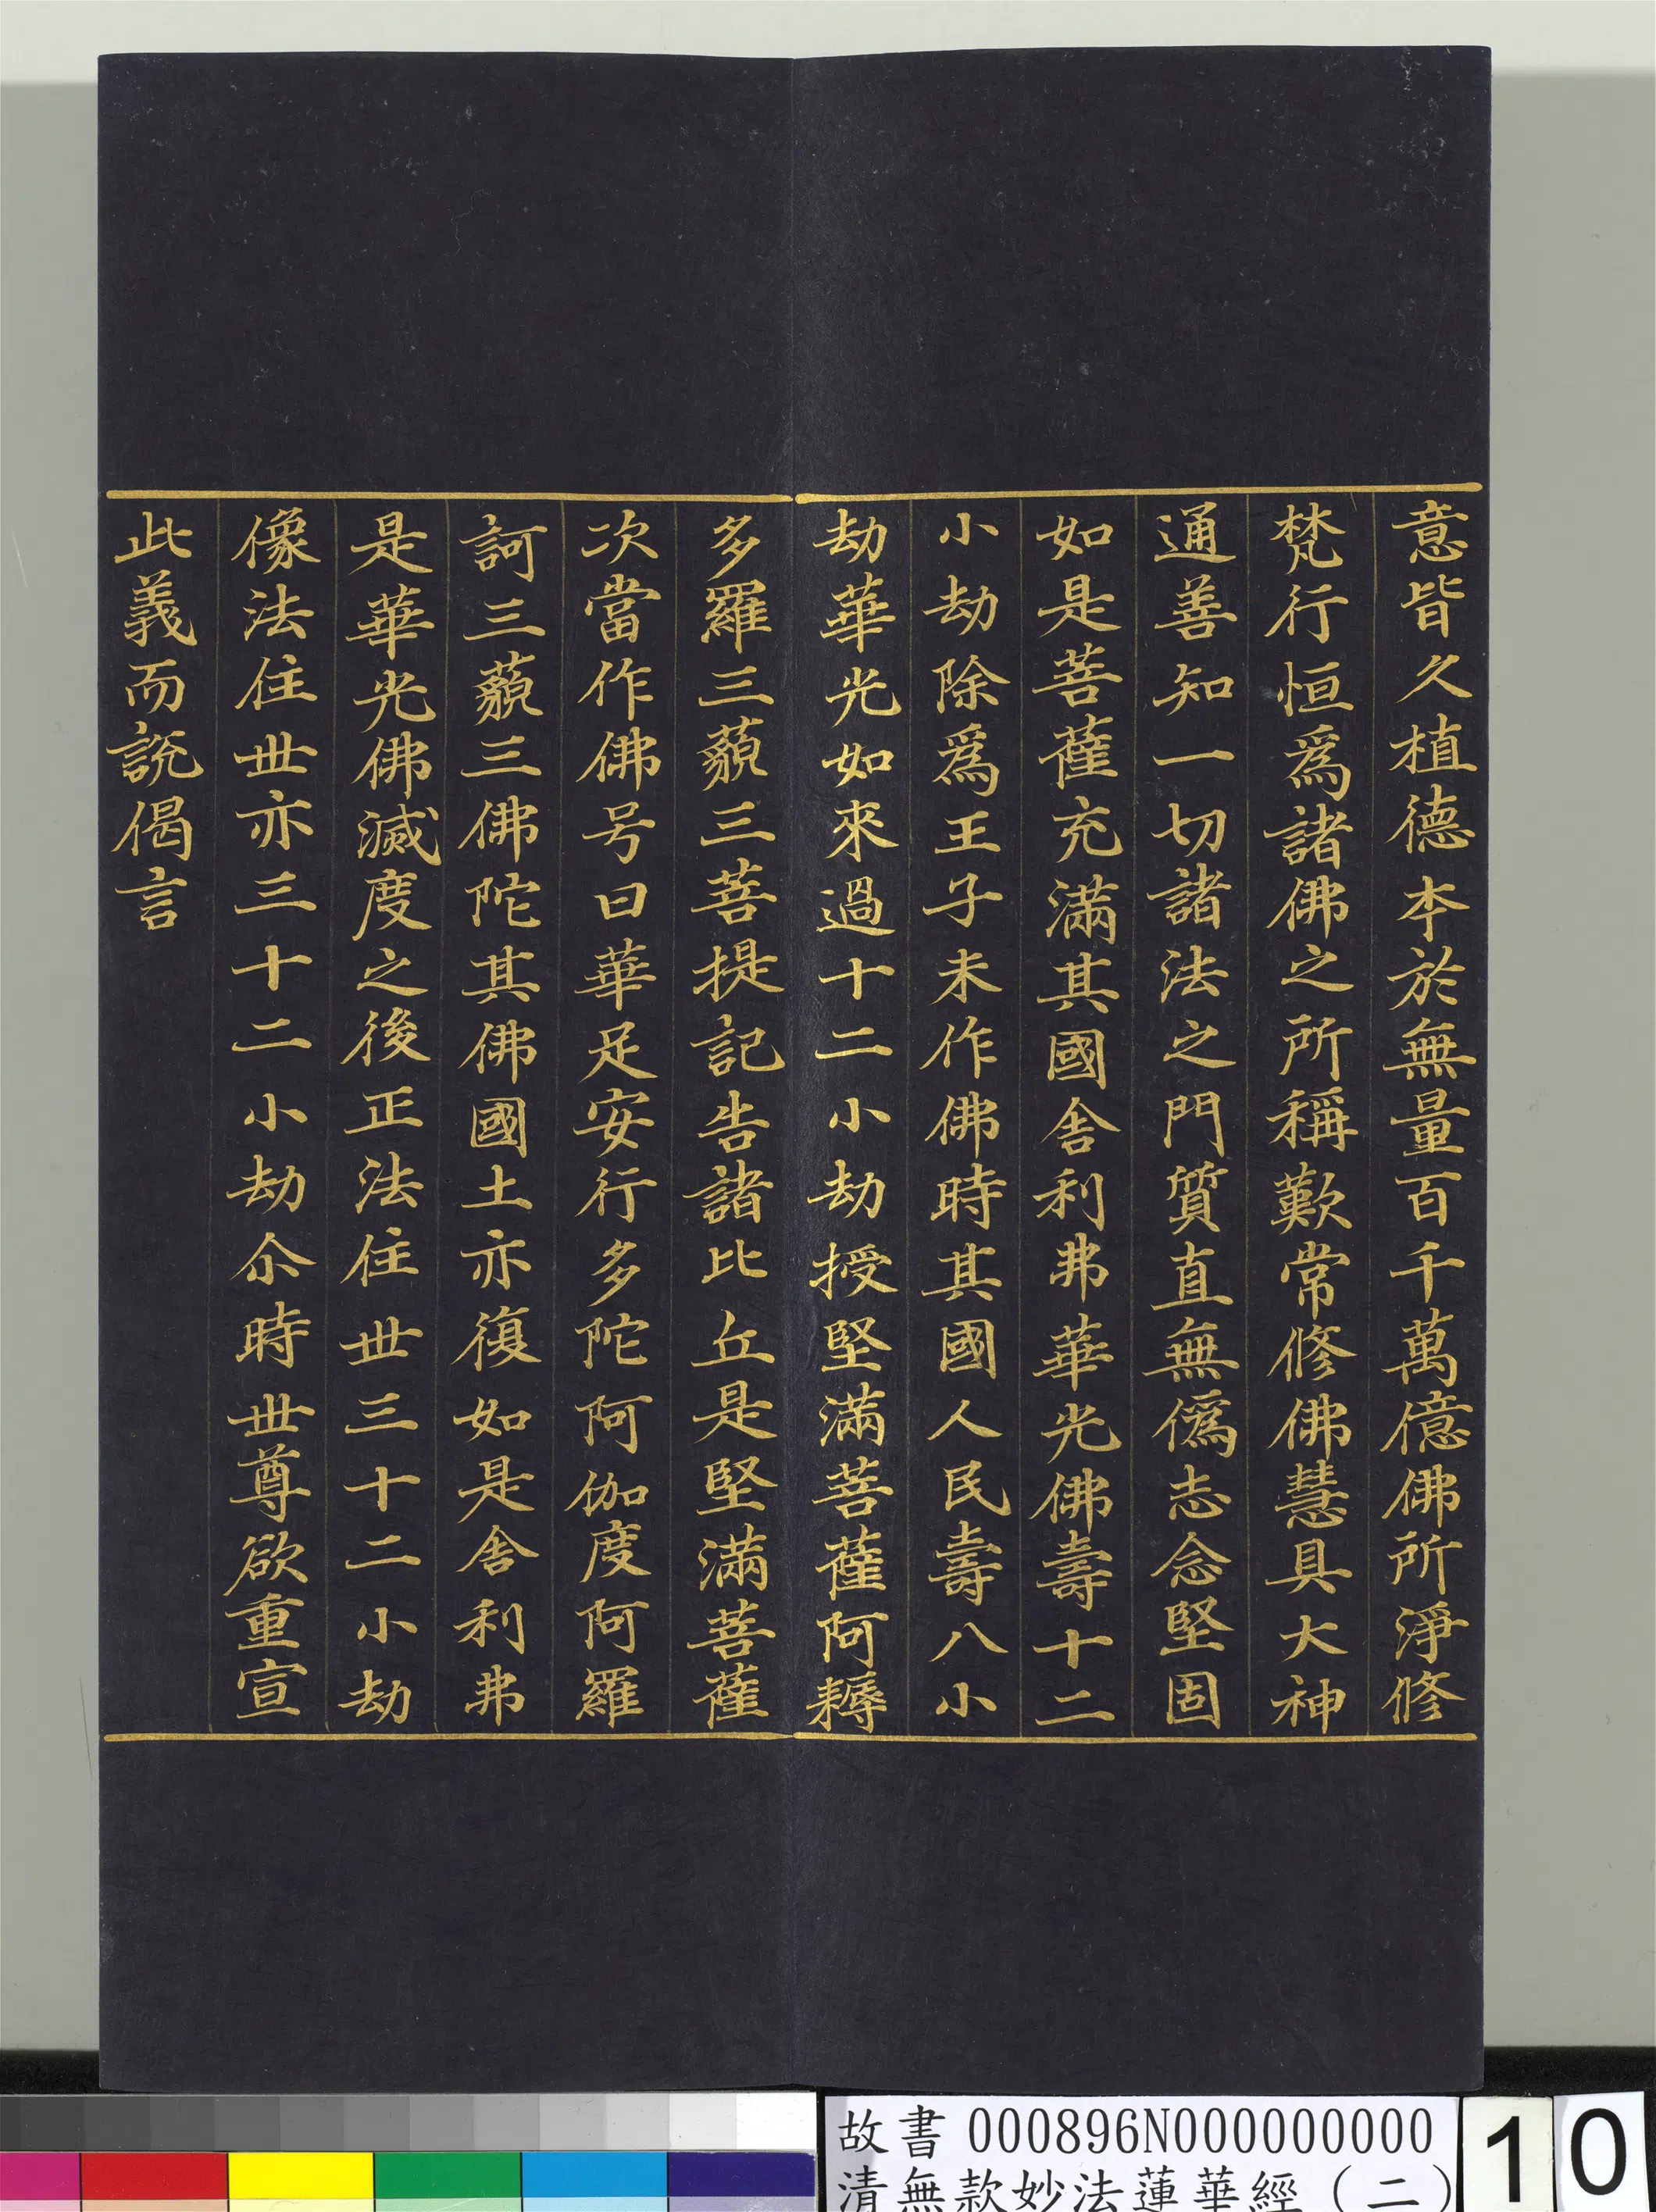 意皆久植德本於無量百千萬億佛所淨修
梵行恒爲諸佛之所稱歎常修佛慧具大神
通善知一切諸法之門質直無僞志念堅固
如是菩薩充滿其國舍利弗華光佛壽十二
小劫除爲王子未作佛時其國人民壽八小
劫華光如來過十二小劫授堅滿菩薩阿耨
多羅三藐三菩提記告諸比丘是堅滿菩薩
次當作佛号曰華足安行多陀阿伽度阿羅
訶三藐三佛陀其佛國土亦復如是舍利弗
是華光佛滅度之後正法住世三十二小劫
像法住世亦三十二小劫尒時世尊欲重宣
此義而說偈言
故書 000896N000000000
清無款妙法蓮華經（二）
10